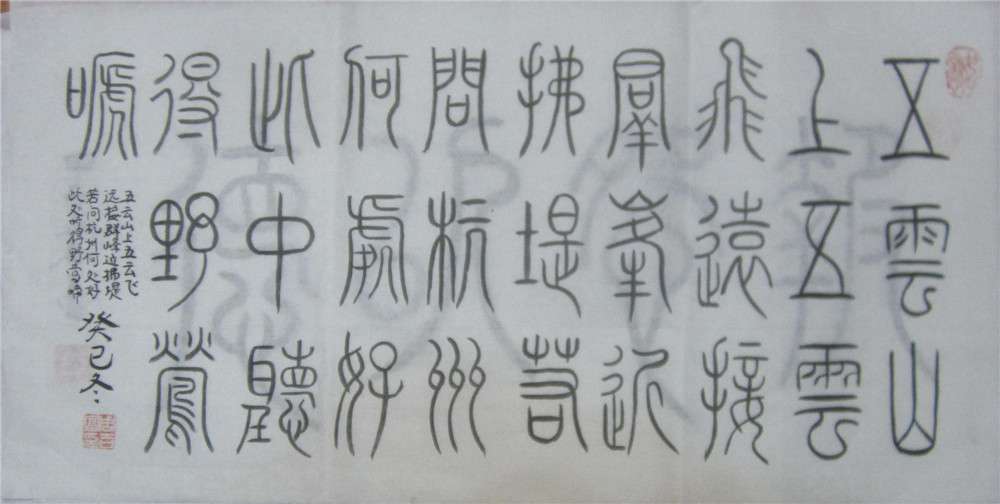 五雲山
上五雲
飛遠接
羣峯近
拂堤若
問杭州
何處好
此中聽
得野鶯
嗁
五云山上五云飞
远接群峰近拂堤
若问杭州何处好
此处听得野莺啼
癸巳冬